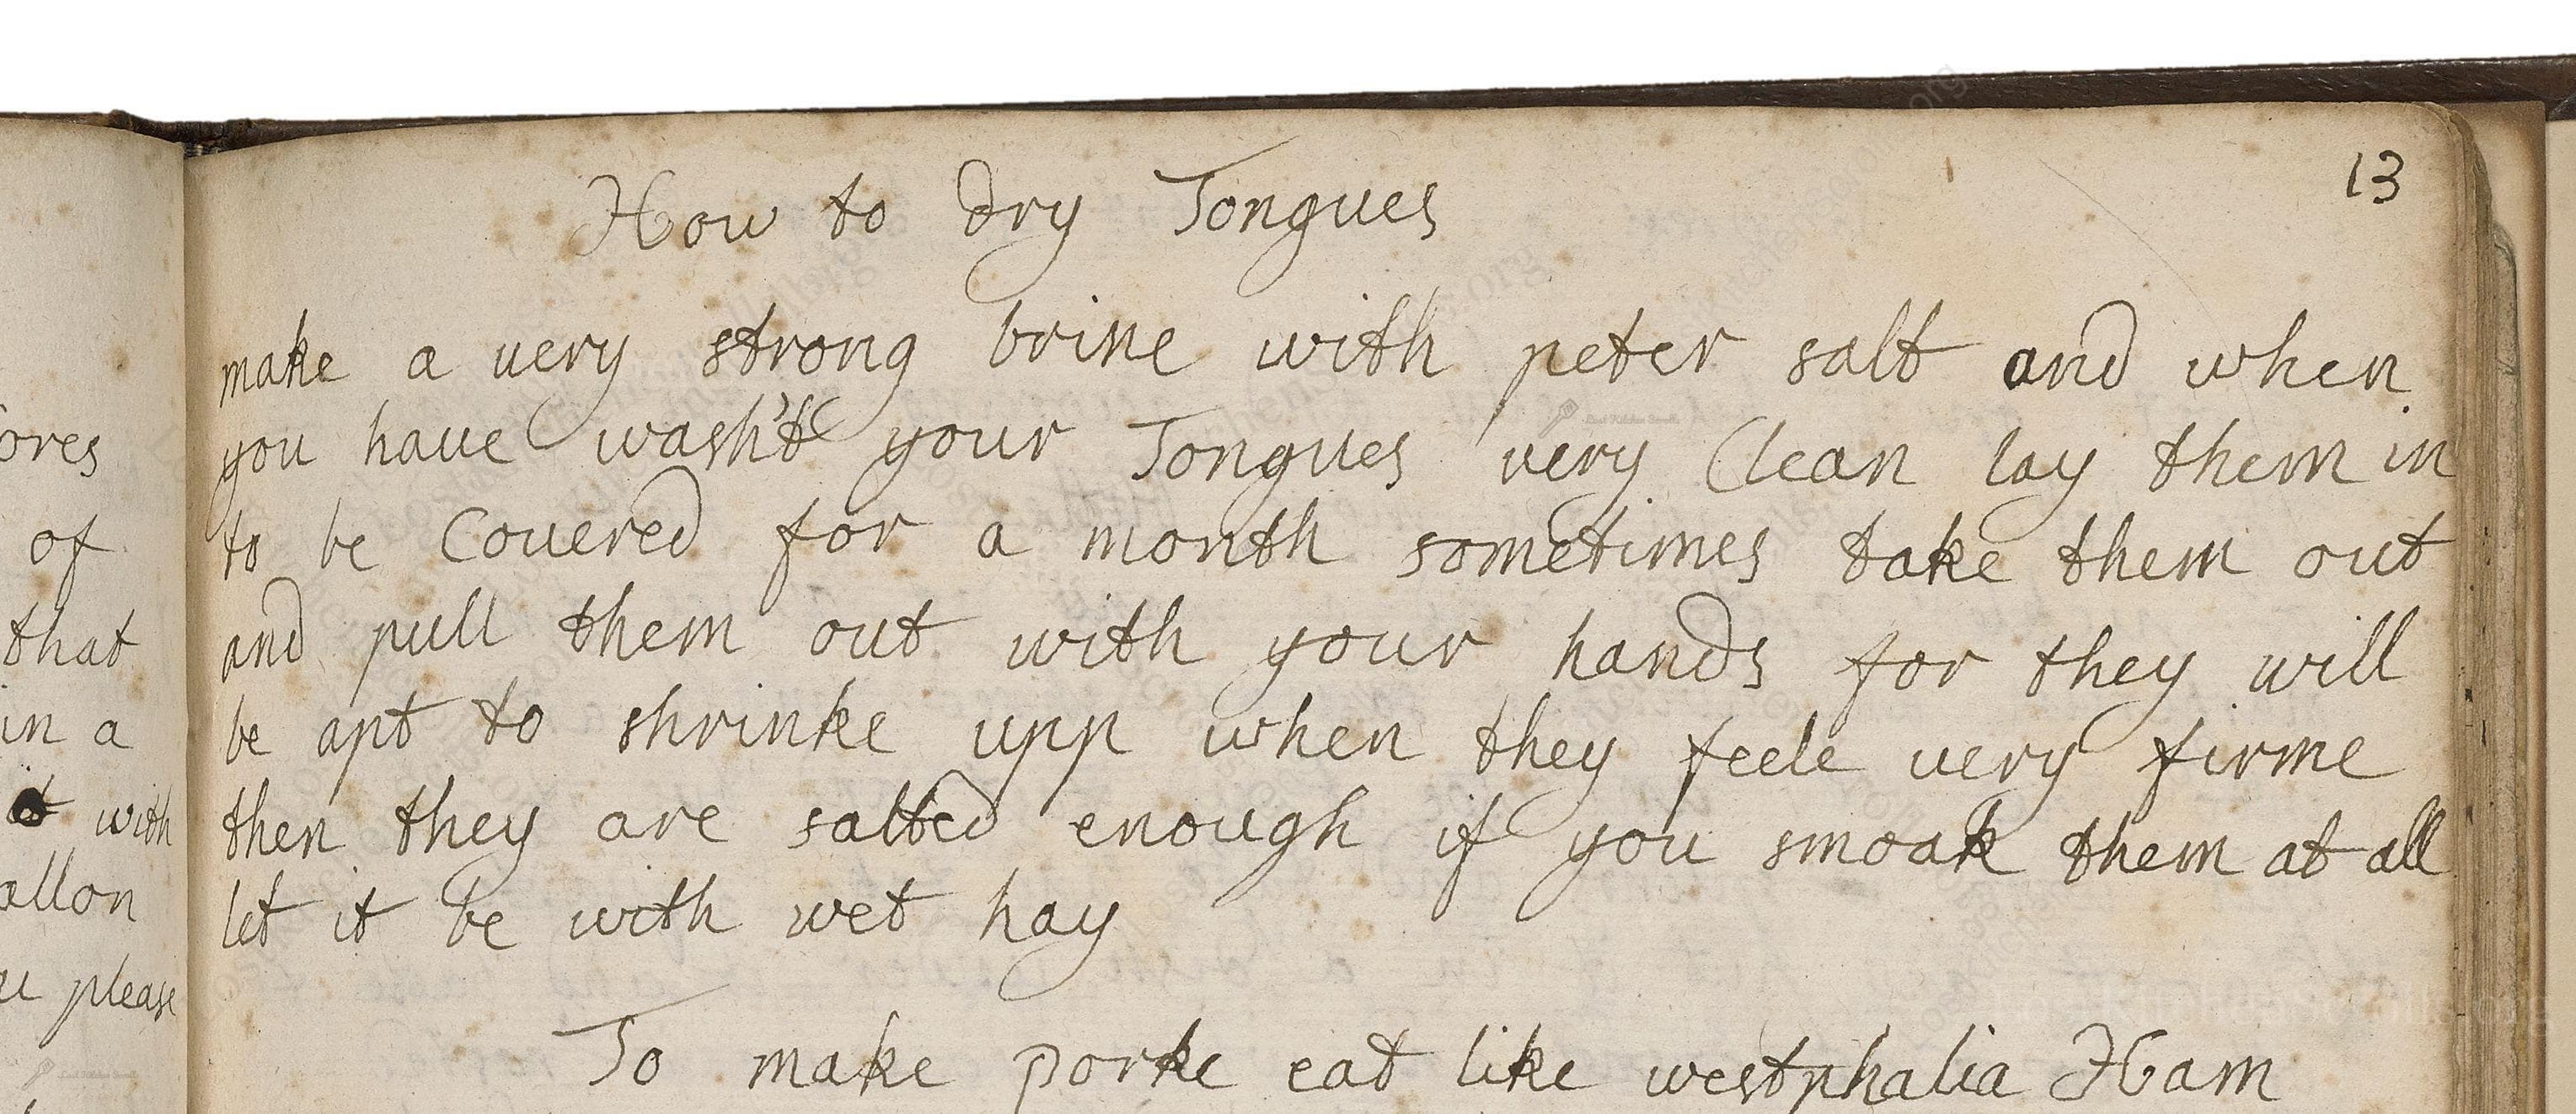 13
How to dry Tongues
make a uery strong brine with peter salt and when
you haue wash't your Tongues uery Clean lay them in
to be Couered for a month sometimes take them out
and pull them out with your hands for they will
be apt to shrinke upp when they feele uery firme
then they are salted enough if you smoak them at all
let it be with wet hay
To make porke eat like westphalia Ham
ores
of
that
in a
with
allon
please